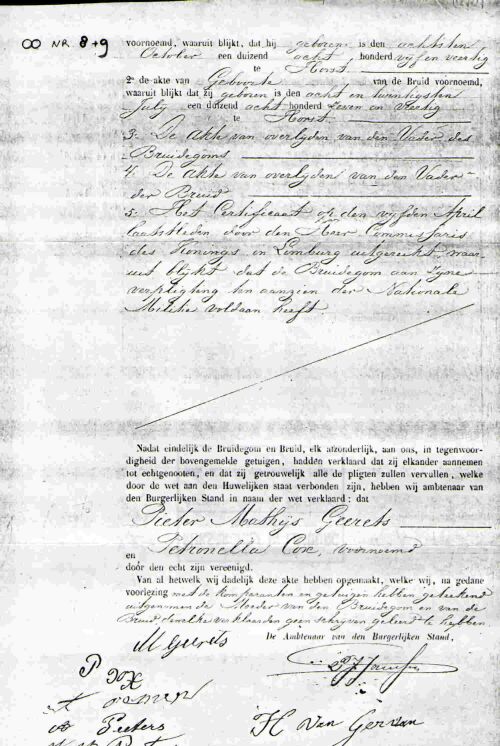 ∞ NR. 8+9
voornoemd, waaruit blijkt, dat hij geboren is den achtsten
October een duizend acht honderd vijf en veertig
te Horst
2º de akte van Geboorte van de Bruid voornoemd,
waaruit blijkt dat zij geboren is den acht en twintigsten
July een duizend acht honderd zeven en veertig
te Horst
3º De akte van overlyden van den Vader des
Bruidegoms
4º De akte van overlyden van den Vader
der Bruid
5º Het Certificaat op den vyfden April
laatstleden door den Heer Commissaris
des Konings in Limburg uitgereikt, waar
uit blykt dat de Bruidegom aan zyne
verpligting ten aanzien der Nationale
Militie voldaan heeft.
Nadat eindelijk de Bruidegom en Bruid, elk afzonderlijk, aan ons, in tegenwoor-
digheid der bovengemelde getuigen, hadden verklaard dat zij elkander aannemen
tot echtgenooten, en dat zij getrouwelijk alle de pligten zullen vervullen, welke
door de wet aan den Huwelijken staat verbonden zijn, hebben wij ambtenaar van
den Burgerlijken Stand in naam der wet verklaard: dat
Pieter Mathijs Geerets
en Petronella Cox, voornoemd
door den echt zijn vereenigd.
Van al hetwelk wij dadelijk deze akte hebben opgemaakt, welke wij, na gedane
voorlezing met de komparanten en getuigen hebben geteekend
uitgenomen de Moeder van den Bruidegom en van de
Bruid dewelke verklaarden geen schryven geleerd te hebben
De Ambtenaar van den Burgerlijken Stand,
M Geerets
P Cox
Pieters
H Van Gerven